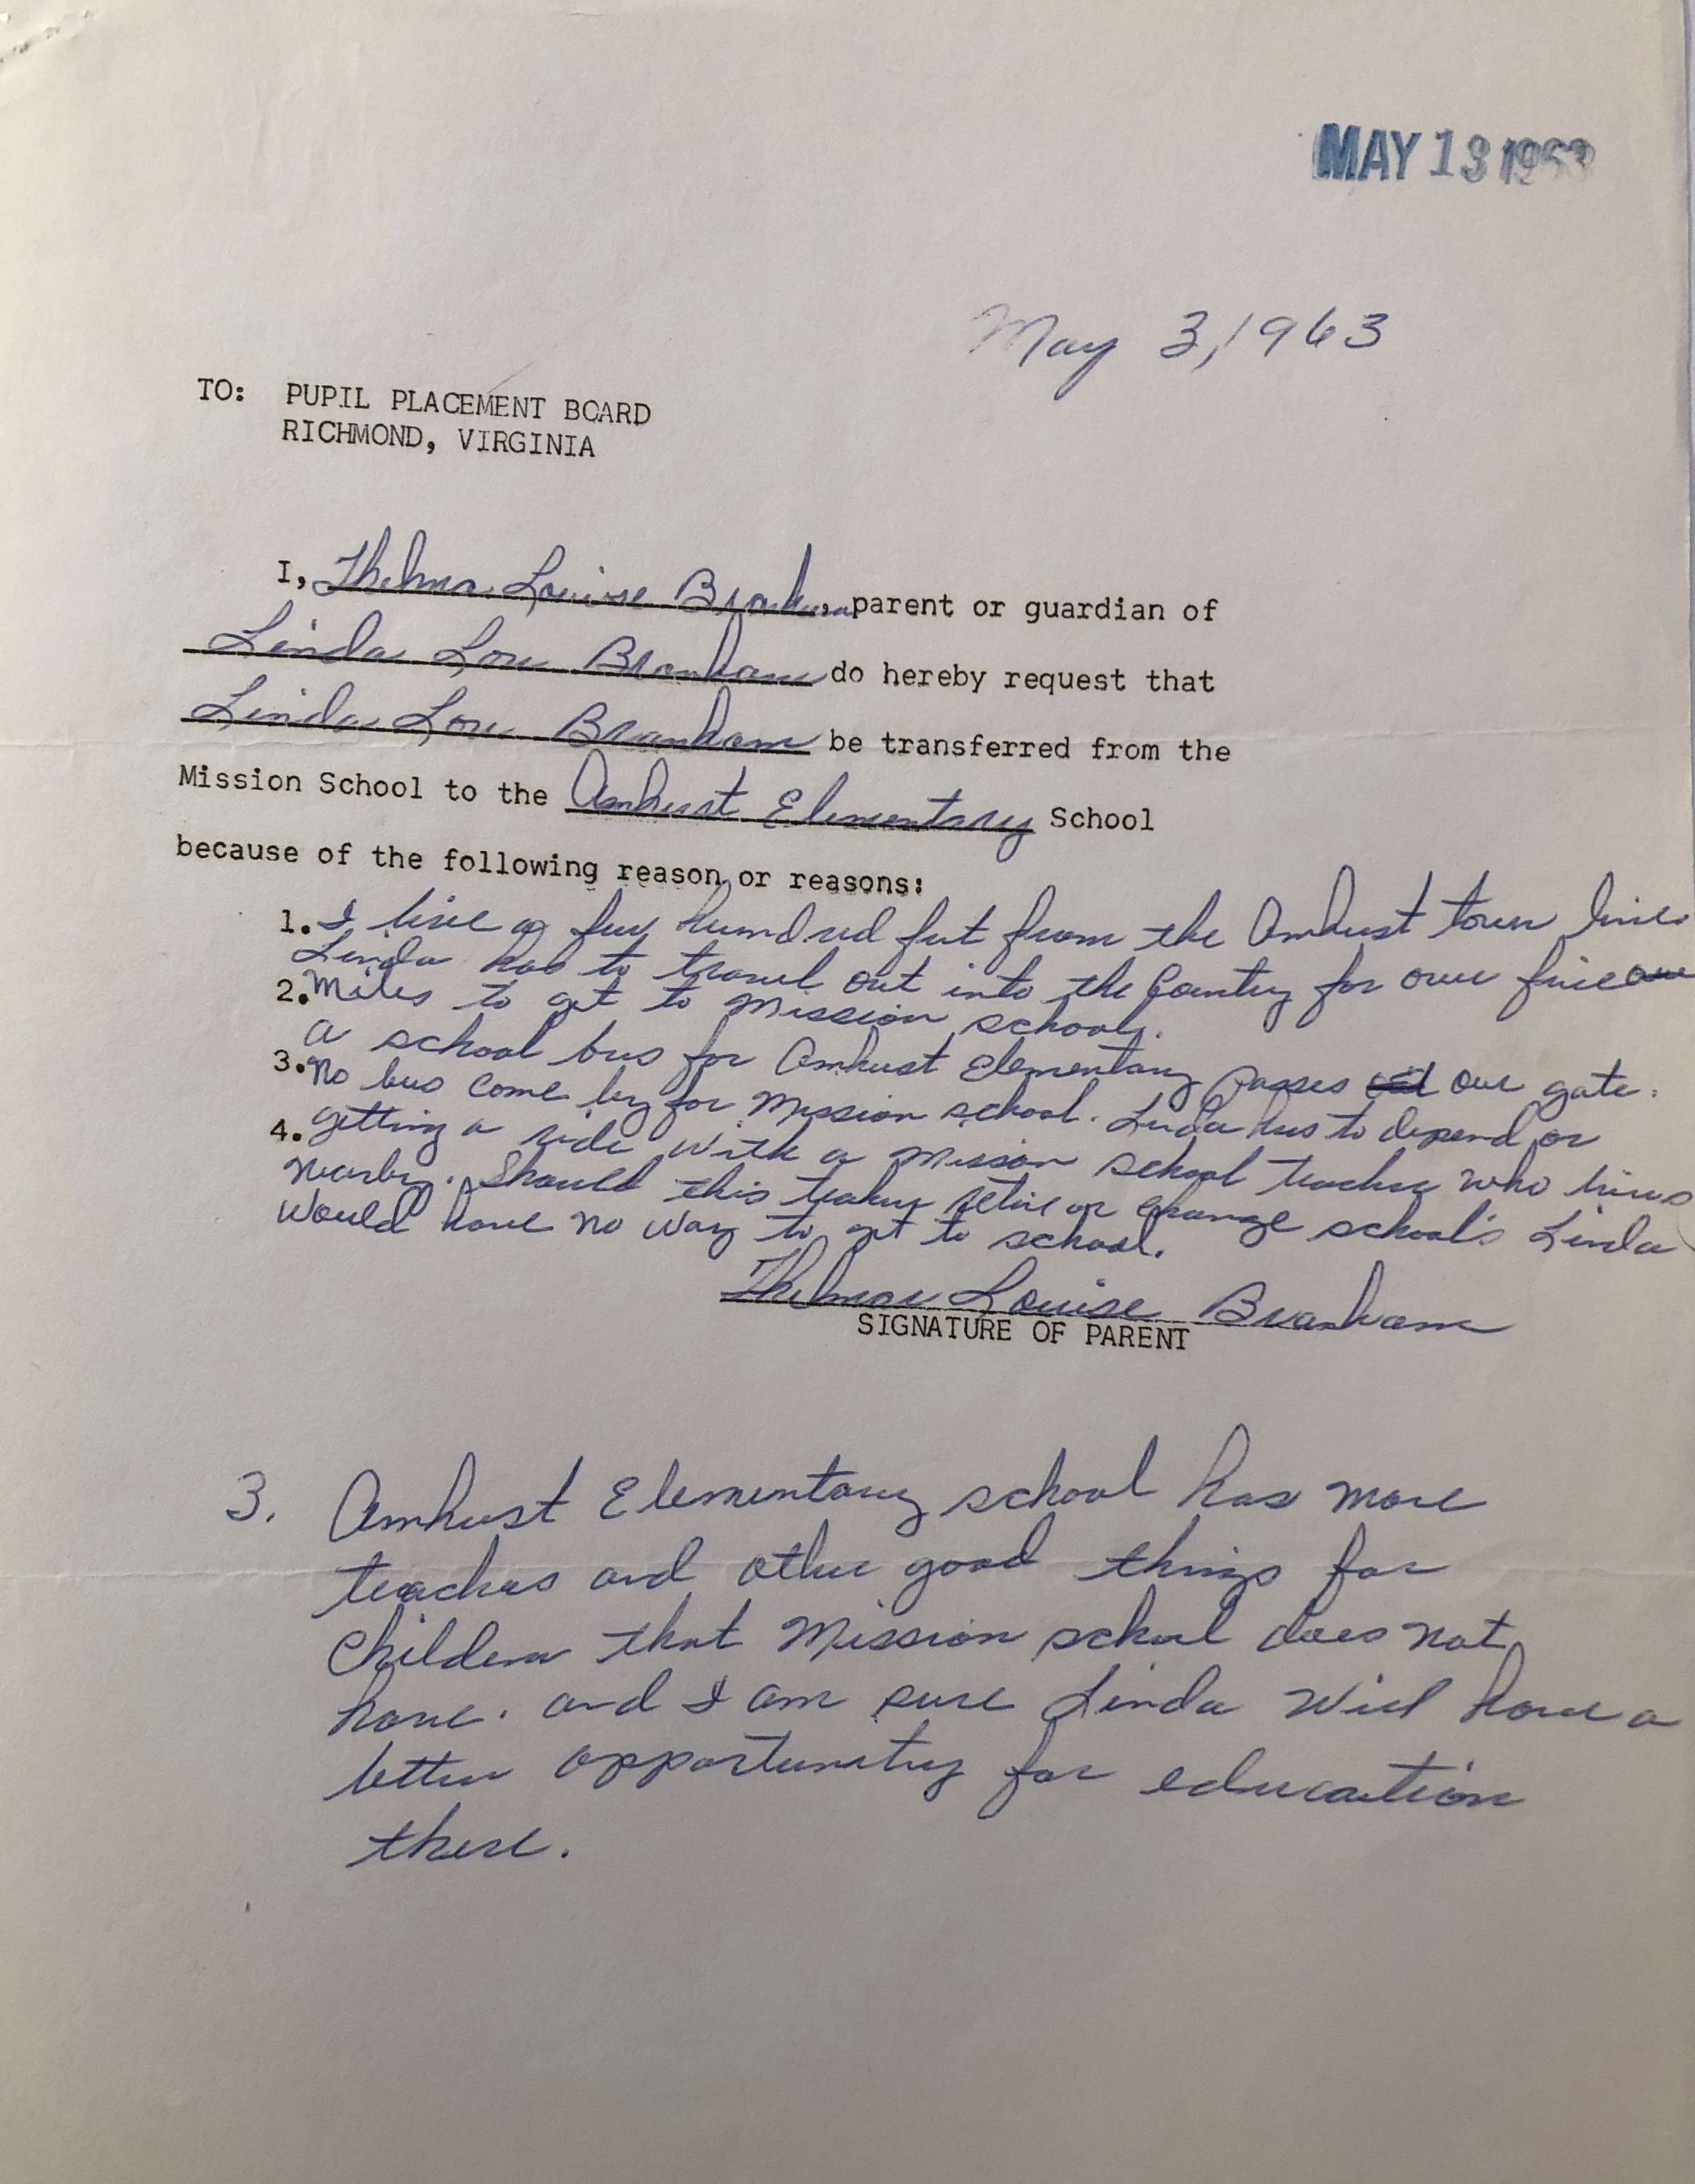 MAY 13 1963
May 3, 1963
TO: PUPIL PLACEMENT BOARD
RICHMOND, VIRGINIA
I, Thelma Louise Branham, parent or guardian of
Linda Lou Branham do hereby request that
Linda Lou Branham be transferred from the
Mission School to the Amhust Elementary School
because of the following reason or reasons:
1. I live a few hundred feet from the Amhust town line.
Linda has to travel out into the Country for over five
2. Miles to get to Mission school.
A school bus for Amhust Elementary passes our gate.
3. No bus come by for Mission school. Linda has to depend on
4. getting a ride with a Mission school teacher who lives
nearby. Should this teacher retire or change school's Linda
would have no way to get to school.
Thelma Louise Branham
SIGNATURE OF PARENT
3. Amhust Elementary school has more
teachers and other good things for
Children that Mission school does not
have. and I am sure Linda will have a
better opportunity for education
there.